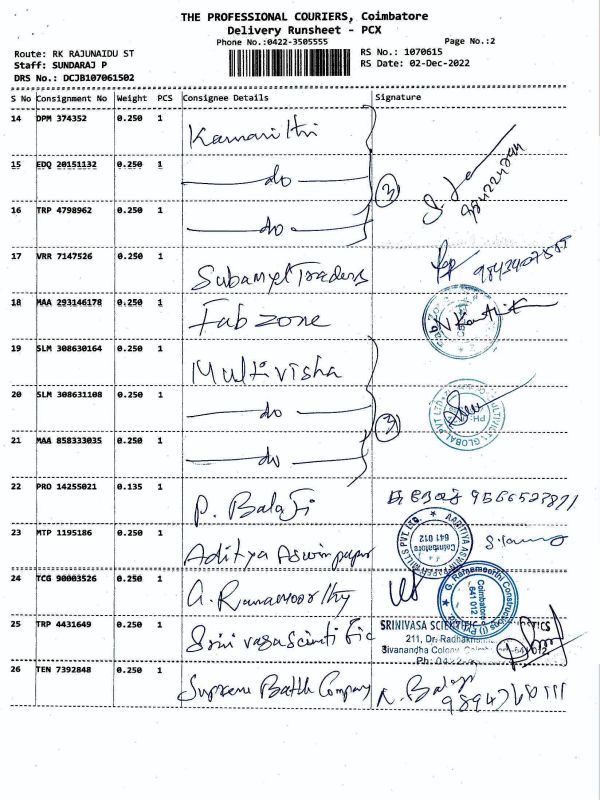 THE PROFESSIONAL COURIERS, Coimbatore
Delivery Runsheet - PCX
Phone No.:0422-3505555
Page No.:2
Route: RK RAJUNAIDU ST
RS No.: 1070615
Staff: SUNDARAJ P
RS Date: 02-Dec-2022
DRS No.: DCJB107061502
S No Consignment No Weight PCS Consignee Details Signature
14 DPM 374352 0.250 1
15 EDQ 20151132 0.250 1 do
3
16 TRP 4798962 0.250 1 do
17 VRR 7147526 0.250 1 Traders
18 MAA 293146178 0.250 1 Fab zone
19 SLM 308630164 0.250 1 Multivisha
20 SLM 308631108 0.250 1 do
3
21 MAA 858333035 0.250 1 do
22 PRO 14255021 0.135 1 P. Balaji
23 MTP 1195186 0.250 1 Aditya Aswin paper
Coimbatore
641 012
24 TCG 90003526 0.250 1 G. Ramamoorthy
G. Ramamoorthi Constructions (I) Pvt Ltd
Coimbatore
641 012
25 TRP 4431649 0.250 1 Srinivasa Scientific
SRINIVASA
211, Dr.
Sivanandha Colony,
Ph:
26 TEN 7392848 0.250 1 Company